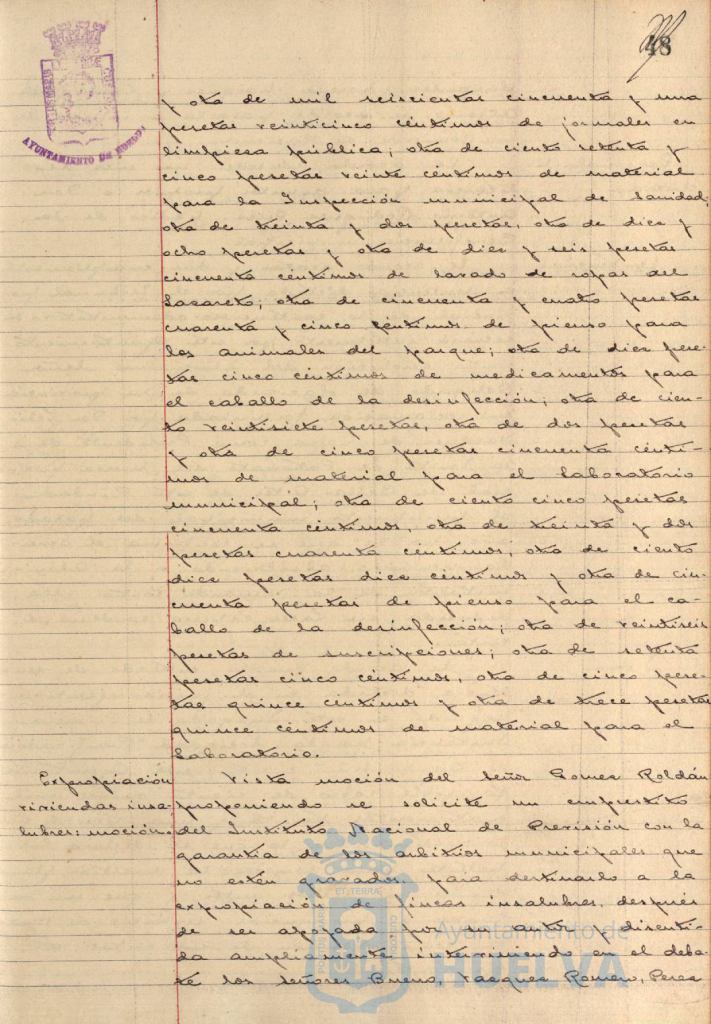 48
AYUNTAMIENTO DE HUELVA
y otra de mil seiscientas cincuenta y una
pesetas veinticinco céntimos de jornales en
limpieza pública; otra de ciento setenta y
cinco pesetas veinte céntimos de material
para la Inspección municipal de Sanidad;
otra de treinta y dos pesetas, otra de diez y
ocho pesetas y otra de diez y seis pesetas
cincuenta céntimos de lavado de ropas del
Lazareto; otra de cincuenta y cuatro pesetas
cuarenta y cinco céntimos de pienso para
los animales del parque; otra de diez pese-
tas cinco céntimos de medicamentos para
el caballo de la desinfección; otra de cien-
to veintisiete pesetas, otra de dos pesetas
y otra de cinco pesetas cincuenta cénti-
mos de material para el Laboratorio
municipal; otra de ciento cinco pesetas
cincuenta céntimos, otra de treinta y dos
pesetas cuarenta céntimos, otra de ciento
diez pesetas diez céntimos y otra de cin-
cuenta pesetas de pienso para el ca-
ballo de la desinfección; otra de veintiseis
pesetas de suscripciones; otra de setenta
pesetas cinco céntimos, otra de cinco pese-
tas quince céntimos y otra de trece pesetas
quince céntimos de material para el
Laboratorio.
Expropiación
viviendas insa-
lubres: moción.
Vista moción del Señor Gomez Roldán
proponiendo se solicite un empréstito
del Instituto Nacional de Previsión con la
garantía de los arbitrios municipales que
no estén gravados, para destinarlo a la
expropiación de fincas insalubres, después
de ser apoyada por su autor y discuti-
da ampliamente interviniendo en el deba-
te los señores Bueno, Vazquez Romero, Perez
Ayuntamiento de
HUELVA